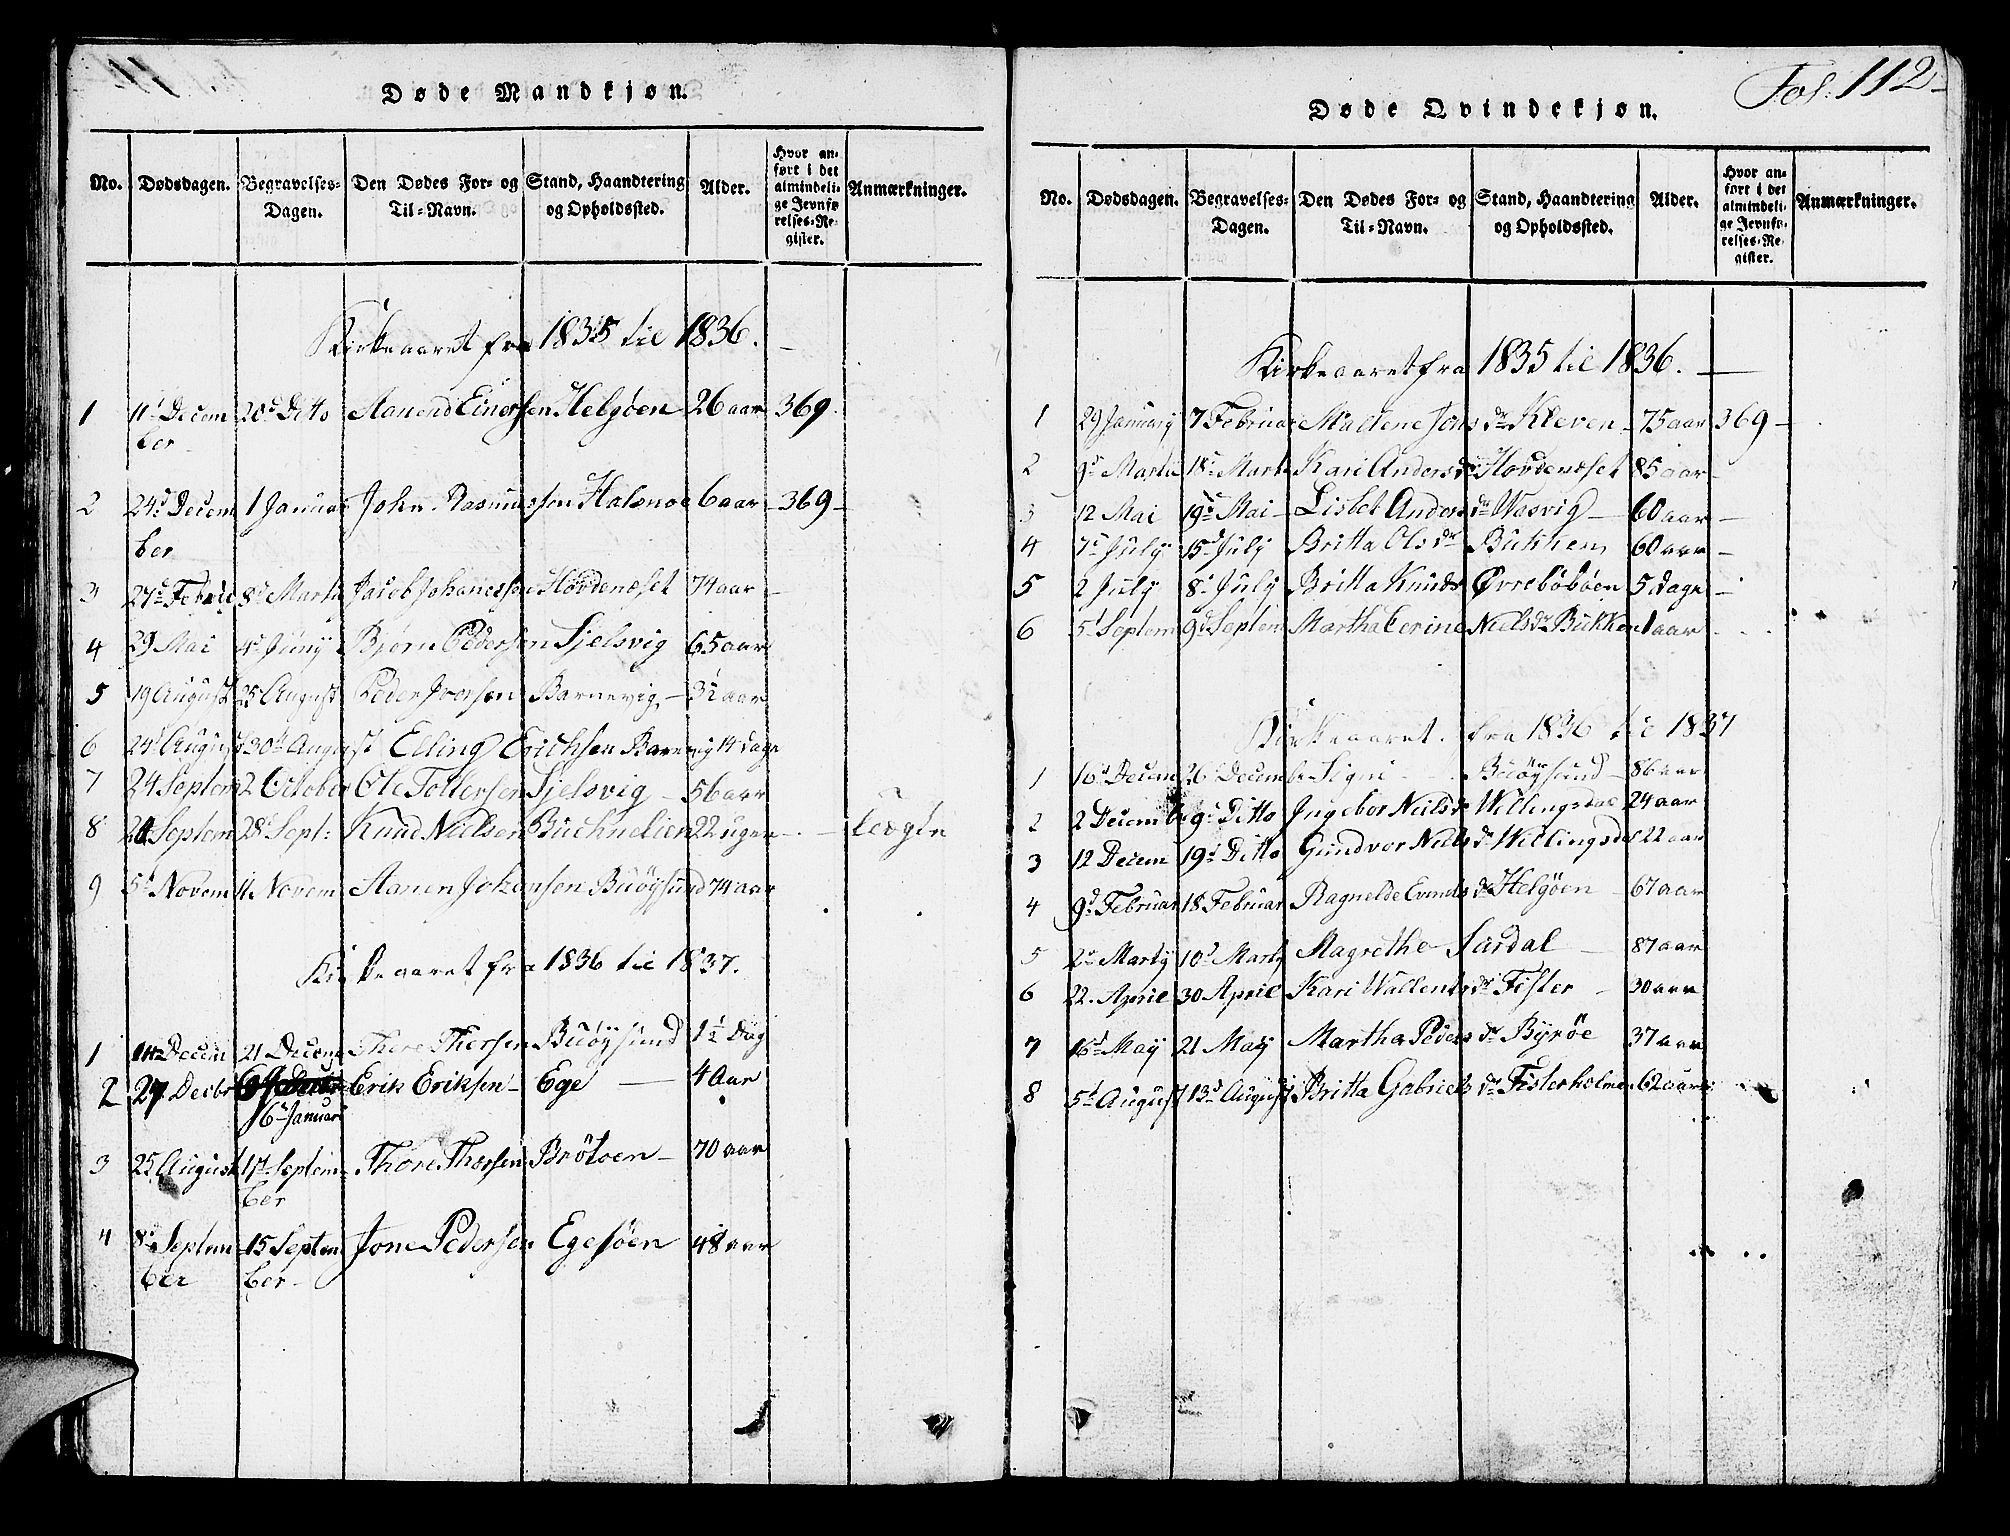 Døde Mandkjøn.
No. Dødsdagen. Begravelses-Dagen. Den Dødes For- og Til-Navn. Stand, Haandtering og Opholdssted. Alder. Hvor anført i det almindelige Jevnførelses-Register. Anmærkninger.
Kirkeaaret fra 1835 til 1836.
1 11t Decem 20d Ditto Aanend Einersen Helgøen 26 aar 369
ber
2 24d Decem 1 Januar John Rasmussen Halsnøe 6 aar 369
ber
3 27d Februar 8d Martii Jacob Johanessen Hovdenæset 74 aar
4 29 Mai 4d Juny Bjørn Pedersen Sjelsvig 65 aar
5 19 August 25 August Peder Iversen Barnevig 3½ aar
6 24d August 30d August Elling Erichsen Barnevig 14 dage
7 24 Septem 2 October Ole Tollersen Sjelsvig 56 aar
8 20 Septem 28d Sept: Knud Nielsen 22 uger
9 5d Novem 11 Novem Aanen Johansen Buøysund 74 aar
Kirkeaaret fra 1836 til 1837.
1 14 Decem 21 Decem Thore Thorsen Buøysund 1½ Dag
2 27 Decbr Erik Eriksen Ege 4 Aar
6te Januari
3 25 August 17d Septem Thore Thorsen Brøtoen 70 aar
ber
4 8d Septem 15 Septem Jone Pedersen Egesøen 48 aar
ber ber
Fol: 112
Døde Qvindekjøn.
No. Dødsdagen. Begravelses-Dagen. Den Dødes For- og Til-Navn. Stand, Haandtering og Opholdssted. Alder. Hvor anført i det almindelige Jevnførelses-Register. Anmærkninger.
Kirkeaaret fra 1835 til 1836.
1 29 January 7 Februar Malene Jonsdr Kleven 75 aar 369
2 9d Martii 18d Marti Kari Andersdr Hovdenæset 85 aar
3 12 Mai 19d Mai Lisbet Andersdr Wasvig 60 aar
4 7d July 15d July Britta Olsdr Bukken 60 aar
5 2 July 8d July Britta Knuds Øvrebøbøen 5 Dage
6 5t Septem 9d Septem Martha Cerine Nielsdr Bukken 1 aar
Kirkeaaret fra 1836 til 1837
1 16d Decem 26 Decembr Signi Buøysund 86 aar
2 2 Decembr 9d Ditto Ingebor Neilsdr Willingsdal 24 aar
3 12 Decem 19d Ditto Gundvor Nielsdr Willingsdal 22 aar
4 9d Februar 18 Februar Ragnelde Evindsdr Helgøen 67 aar
5 2d Marty 10d Marty Magrethe Sardal 87 aar
6 22 April 30 April Kari Wallentsdr Fister 30 aar
7 16d May 21 May Martha Pedersdr Byrøe 37 aar
8 5t August 13d August Britta Gabrielsdr Fisterholmen 62 aar